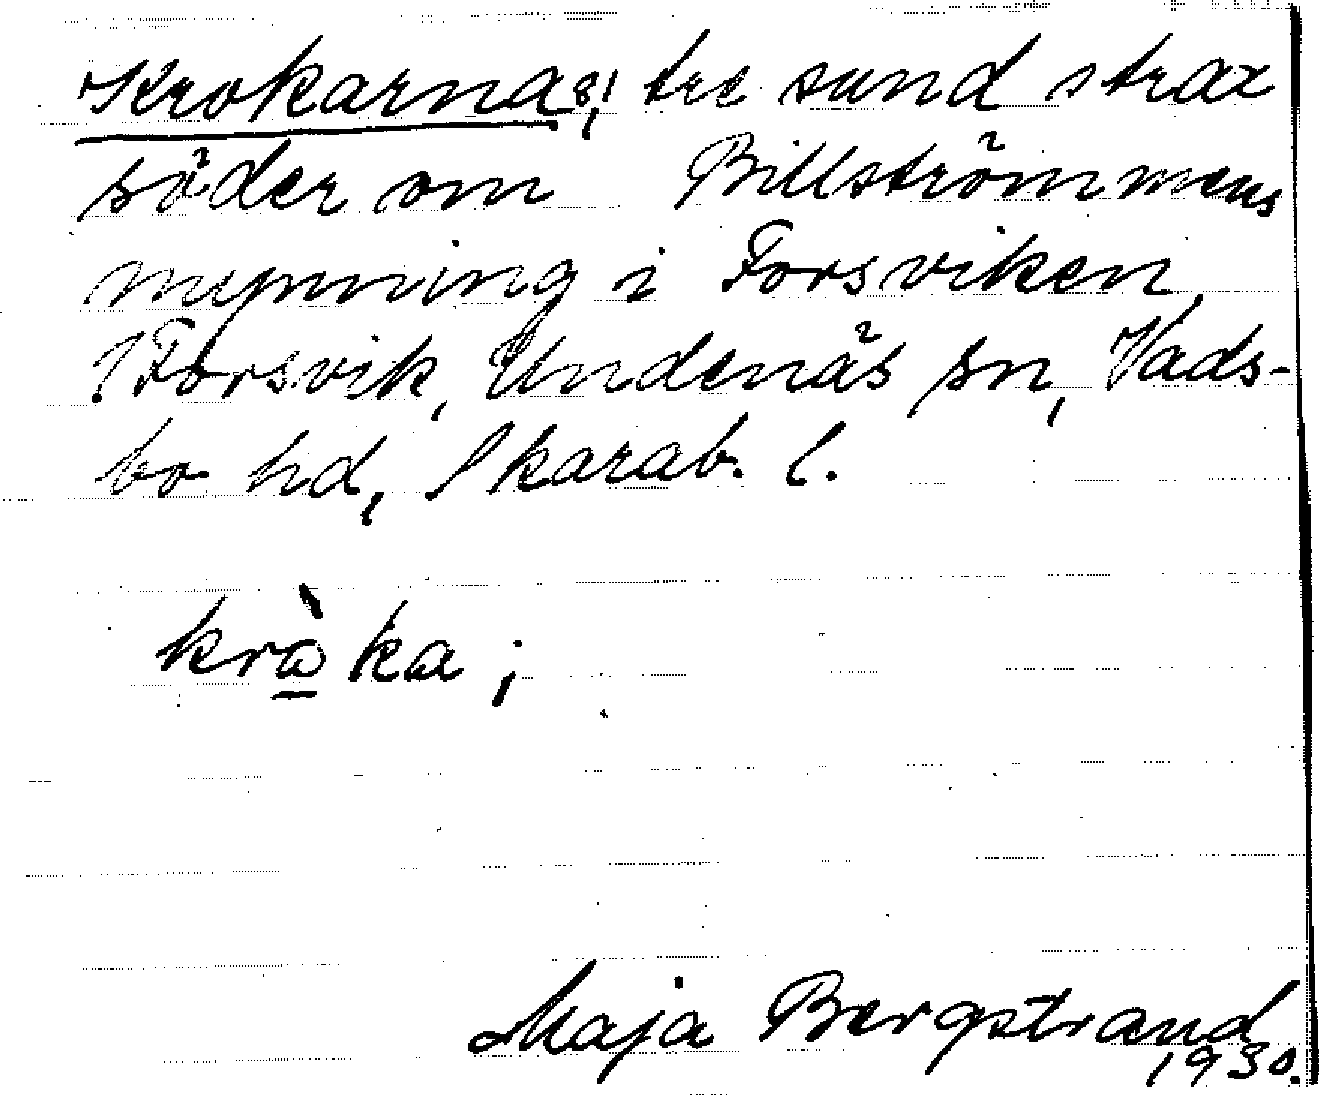 Krokarna, 81 tre sund strax
söder om Billströmmens
mynning i Forsviken,
Forsvik, Undenäs sn, Vads-
bo hd, Skarab. l.
kràka;
Maja Bergstrand
1930.